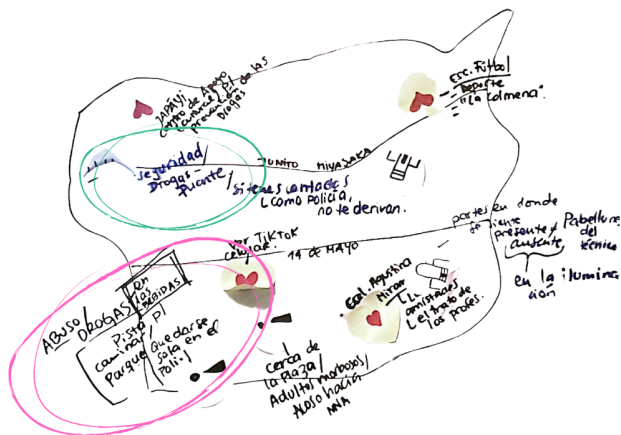 JAPAYI
Centro de Apoyo
cultural p/
prevención de las
Drogas
Esc. Fútbol
- Deporte
- "La Colmena".
JUNITO MIYASAKA
seguridad/
Drogas-
Puente/
Si tenes contactos
como policía,
no te derivan.
partes en donde
se siente
presente y
ausente
Pabellones
del
técnico
en la ilumina
ción
14 de MAYO
Ver TikTok
celular
Esc. Agustina
Mirar
amistades
el trato de
los profes.
ABUSO/
DROGAS
en
las
BEBIDAS
Pista p/
caminar/
Parque
quedarse
sola en el
Poli./
Cerca de
la Plaza/
Adultos morbosos/
Acoso hacia
NNA